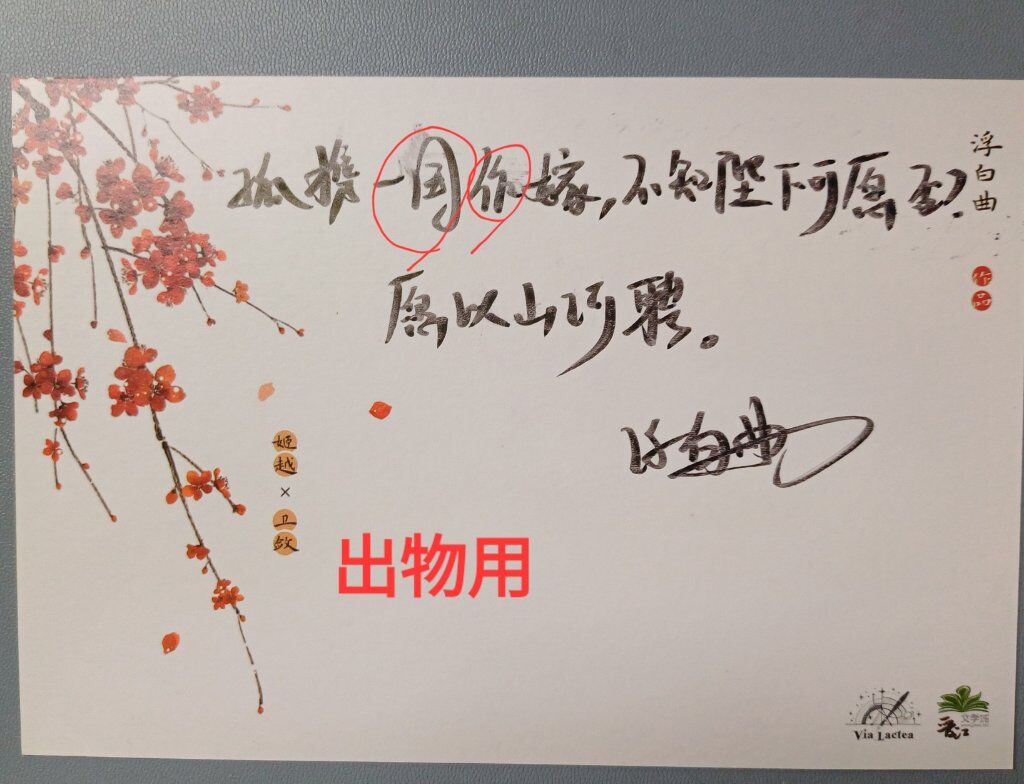 孤携一国作嫁,不知陛下可愿否?
愿以山河聘。
浮白曲
浮白曲
作品
姬越
×
卫敛
出物用
Via Lactea
晋江
文学城